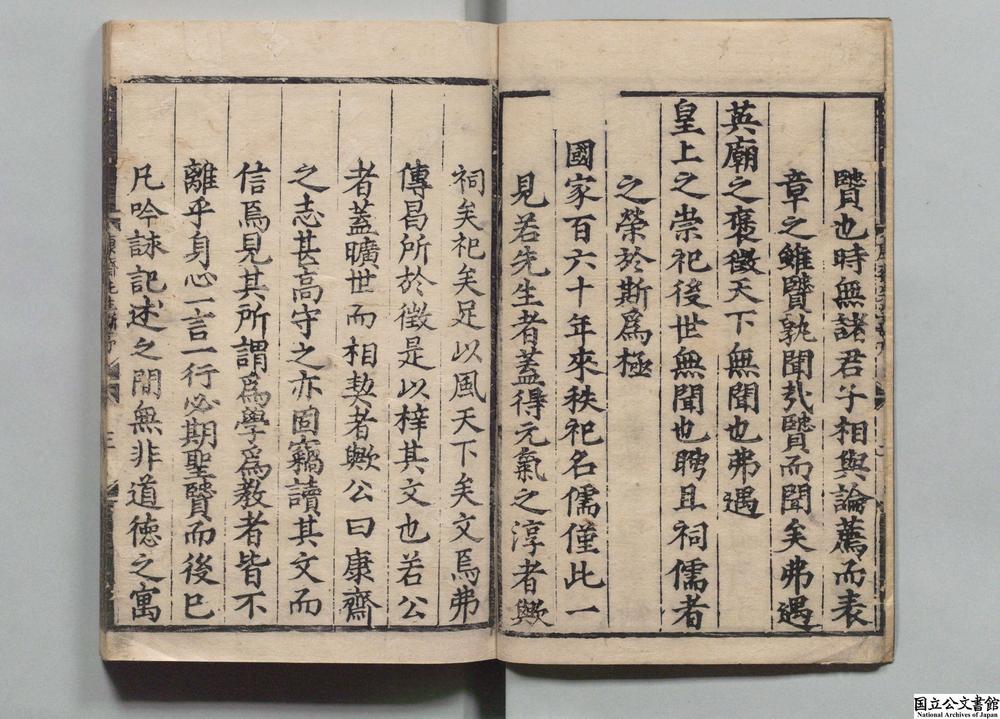 贒也時無諸君子相與論薦而表
章之雖贒孰聞㢤贒而聞矣弗遇
英廟之褒徵天下無聞也弗遇
皇上之崇祀後世無聞也聘且祠儒者
之榮於斯爲極
國家百六十年來秩祀名儒僅此一
見若先生者蓋得元氣之淳者歟
祠矣祀矣足以風天下矣文焉弗
傳曷所於徵是以梓其文也若公
者蓋曠世而相契者歟公曰康齋
之志甚高守之亦固竊讀其文而
信焉見其所謂爲學爲教者皆不
離乎身心一言一行必期聖贒而後已
凡吟詠記述之間無非道徳之寓
国立公文書館
National Archives of Japan